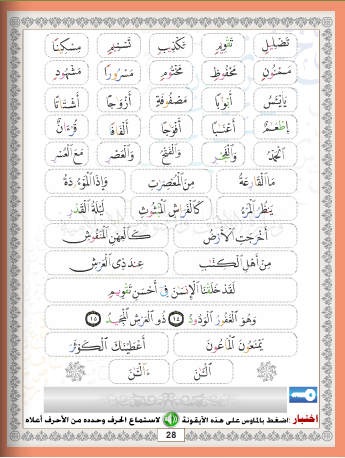 تَضْلِيلٍ تَقْوِيمٍ تَكْذِيبٍ تَسْنِيمٍ مِسْكِينًا
مَمْنُونٍ مَحْفُوظٍ مَخْتُومٍ مَسْرُورًا مَشْهُودٍ
أَبْوَٰبًا مَصْفُوفَةٍ أَزْوَٰجًا أَشْتَاتًا
إِطْعَٰمٌ أَعْنَٰبًا أَفْوَاجًا أَلْفَافًا قُرْءَانٌ
وَٱلْفَجْرِ وَٱلْفَتْحُ وَٱلْعَصْرِ مَعَ ٱلْعُسْرِ
مَا ٱلْقَارِعَةُ مِنَ ٱلْمُعْصِرَٰتِ وَإِذَا ٱلْمَوْءُۥدَةُ
يَنظُرُ ٱلْمَرْءُ كَٱلْفَرَاشِ ٱلْمَبْثُوثِ لَيْلَةُ ٱلْقَدْرِ
أَخْرَجَتِ ٱلْأَرْضُ كَٱلْعِهْنِ ٱلْمَنفُوشِ
مِنْ أَهْلِ ٱلْكِتَٰبِ عِندَ ذِى ٱلْعَرْشِ
لَقَدْ خَلَقْنَا ٱلْإِنسَٰنَ فِىٓ أَحْسَنِ تَقْوِيمٍ
وَهُوَ ٱلْغَفُورُ ٱلْوَدُودُ ١٤ ذُو ٱلْعَرْشِ ٱلْمَجِيدُ ١٥
يَمْنَعُونَ ٱلْمَاعُونَ أَعْطَيْنَٰكَ ٱلْكَوْثَرَ
ءَآلْـَٰٔنَ
إختبار :اضغط بالماوس على هذه الأيقونة لاستماع الحرف وحدده من الأحرف أعلاه
28